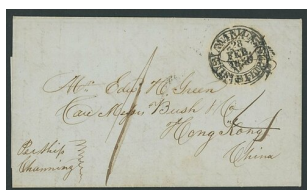 FEB
Mr. Edwd H. Green
Care Messrs Bush & Co
Hong Kong
China
Per Ship
Channing